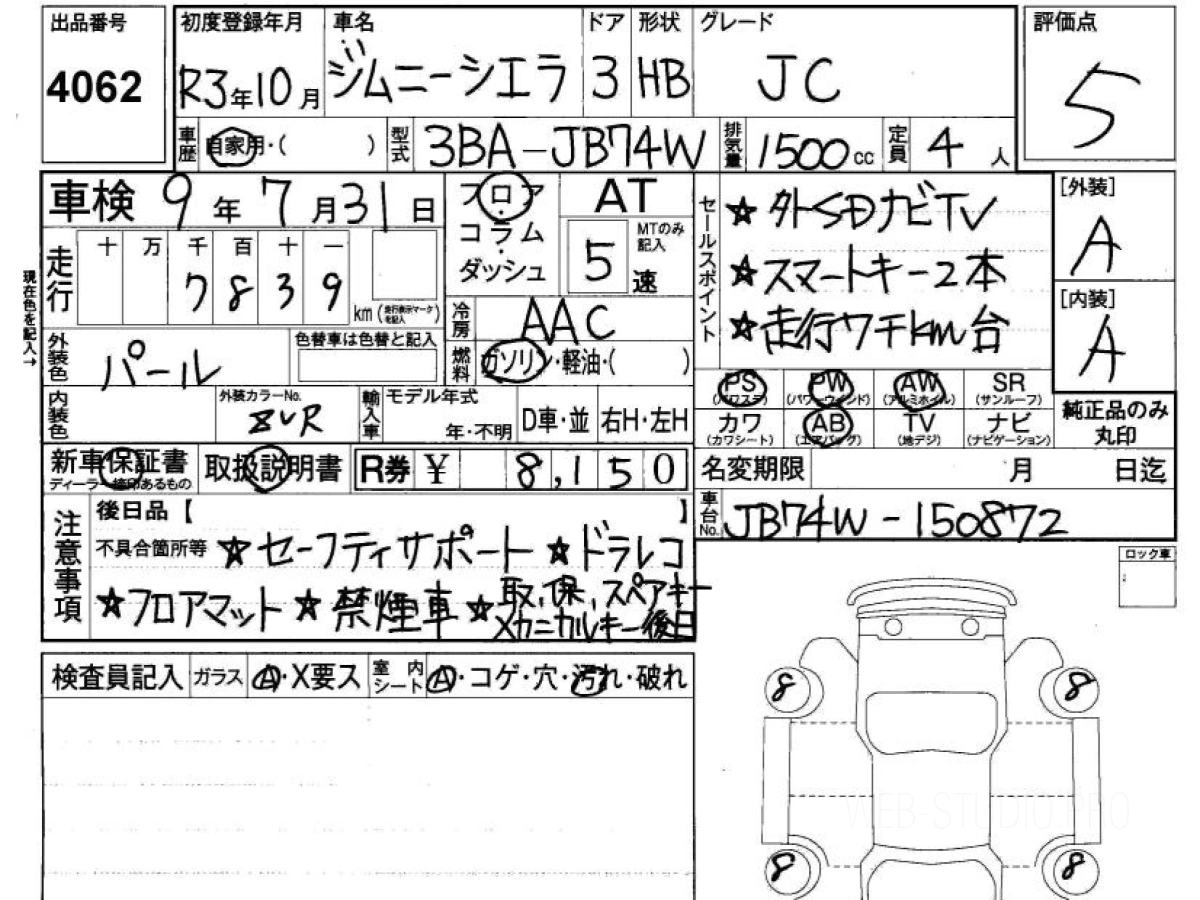 出品番号
4062
初度登録年月
R3年10月
車名
ジムニーシエラ
ドア
3
形状
HB
グレード
JC
評価点
5
車歴
自家用・( )
型式
3BA-JB74W
排気量
1500cc
定員
4人
車検 9年7月31日
走行
十 万 千 百 十 一
7 8 3 9
km(走行表示マークを記入)
現在色を記入→
フロア
・
コラム
・
ダッシュ
AT
5速
MTのみ記入
冷房
AAC
燃料
ガソリン・軽油・( )
外装色
パール
色替車は色替と記入
内装色
外装カラーNo.
ZVR
輸入車
モデル年式
年・不明
D車・並
右H・左H
セールスポイント
☆外SDナビTV
☆スマートキー2本
☆走行ワ千km台
[外装]
A
[内装]
A
PS
(パワステ)
PW
(パワーウィンド)
AW
(アルミホイル)
SR
(サンルーフ)
カワ
(カワシート)
AB
(エアバッグ)
TV
(地デジ)
ナビ
(ナビゲーション)
純正品のみ
丸印
新車保証書
ディーラー捺印あるもの
取扱説明書
R券 ¥ 8,150
名変期限 月 日迄
車台No.
JB74W-150872
注意事項
後日品【 】
不具合箇所等 ☆セーフティサポート ☆ドラレコ
☆フロアマット ☆禁煙車 ☆取、保、スペアキー
メカニカルキー後日
ロック車
検査員記入
ガラス
A・X要ス
室内シート
A・コゲ・穴・汚れ・破れ
8
8
8
8
WEB-STUDIO.PRO